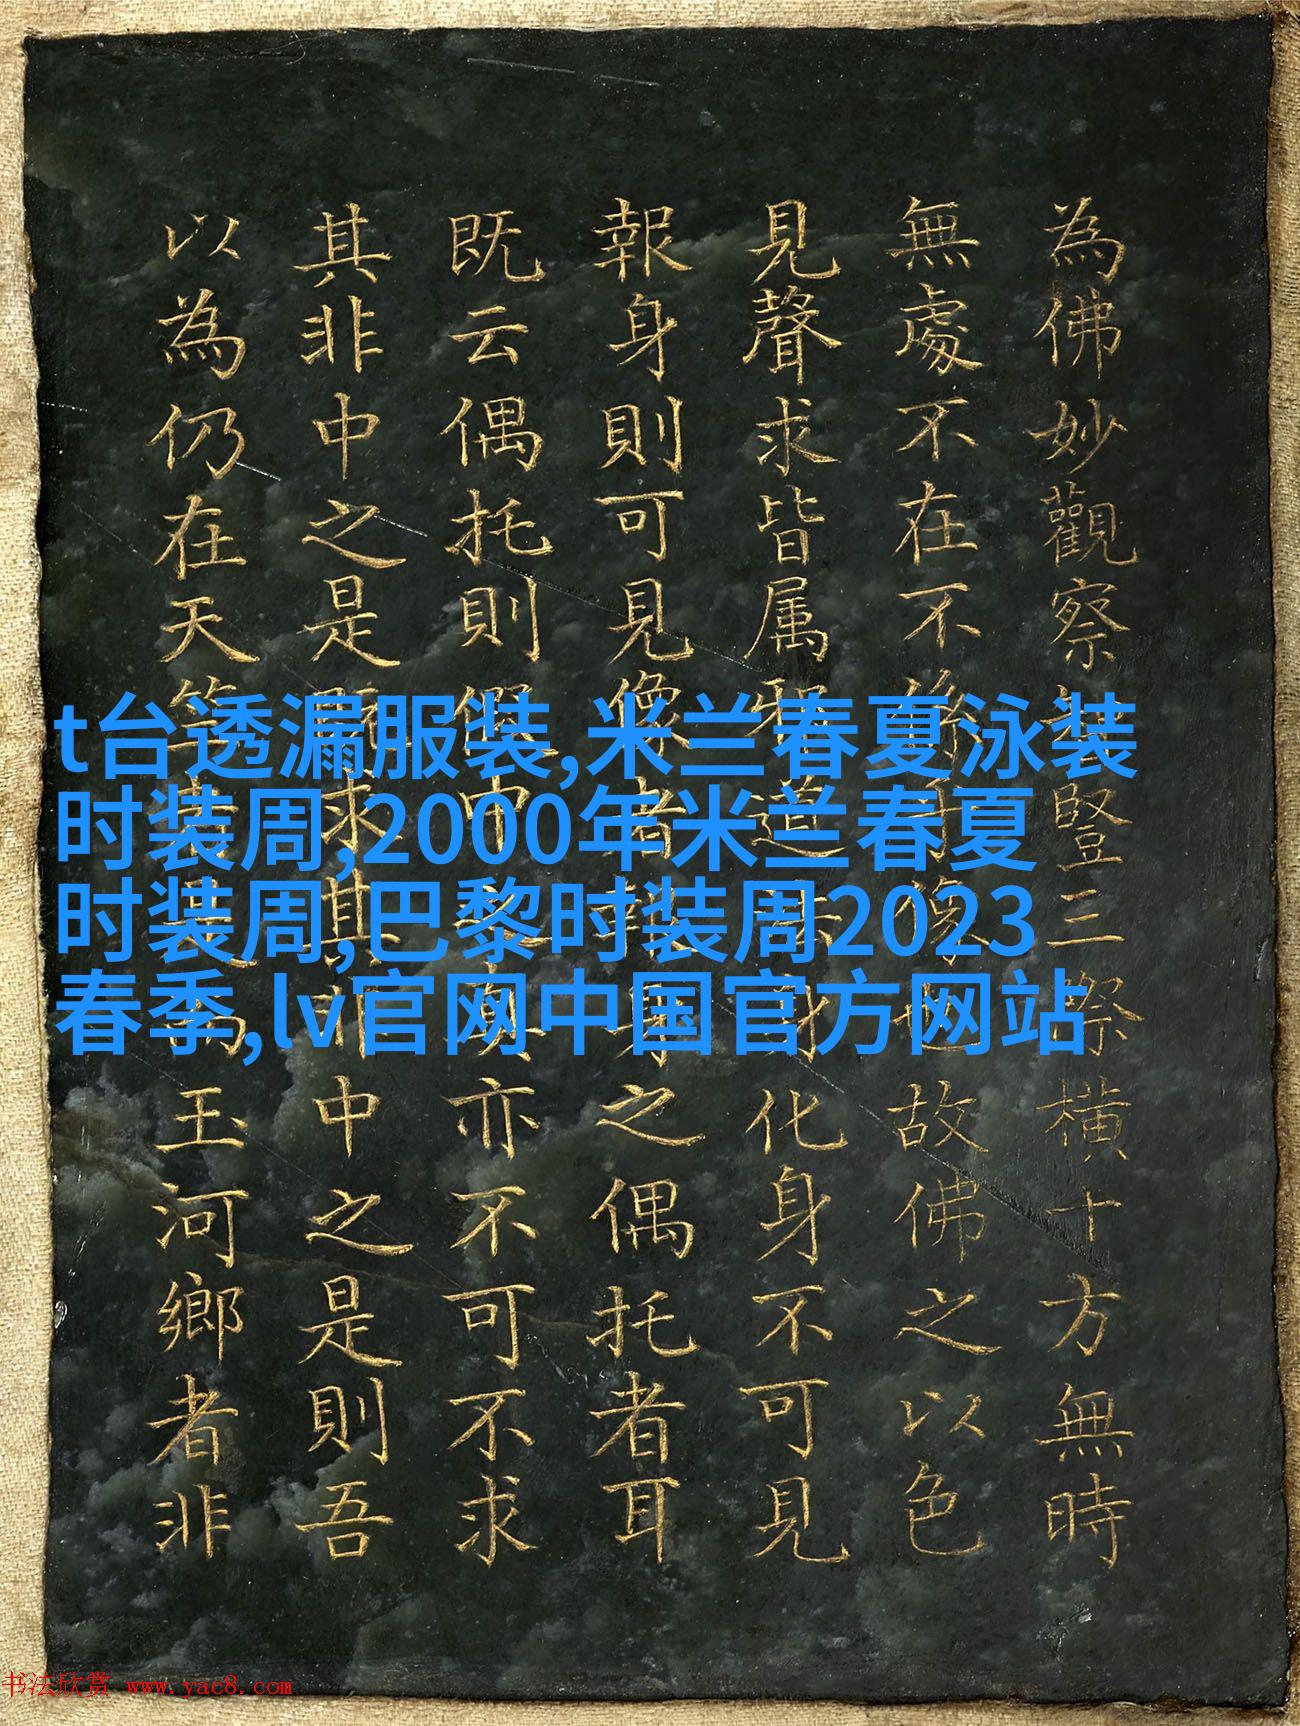 為佛妙觀察豎三際橫十方無時
無處不在不可像也故佛之以色
見聲求皆属邪道法身化身不可見
報身則可見像者報身之偶托者耳
既云偶托則假中之真亦不可不求
其非中之是既求其非中之是則吾
以為仍在天竺玉河鄉者非
t台透漏服装,米兰春夏泳装
时装周,2000年米兰春夏
时装周,巴黎时装周2023
春季,lv官网中国官方网站
书法欣赏 www.yac8.com